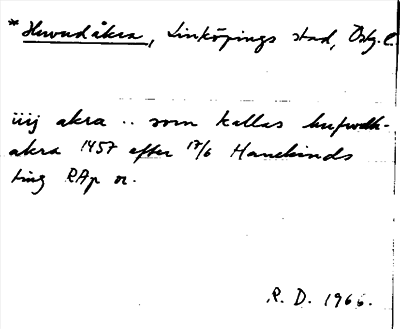 *Huvudåkra, Linköpings stad, Östg. l.
iiij akra .. som kallas hufwdh-
akra 1457 efter 17/6 Hanekinds
ting RAp or.
R. D. 1966.